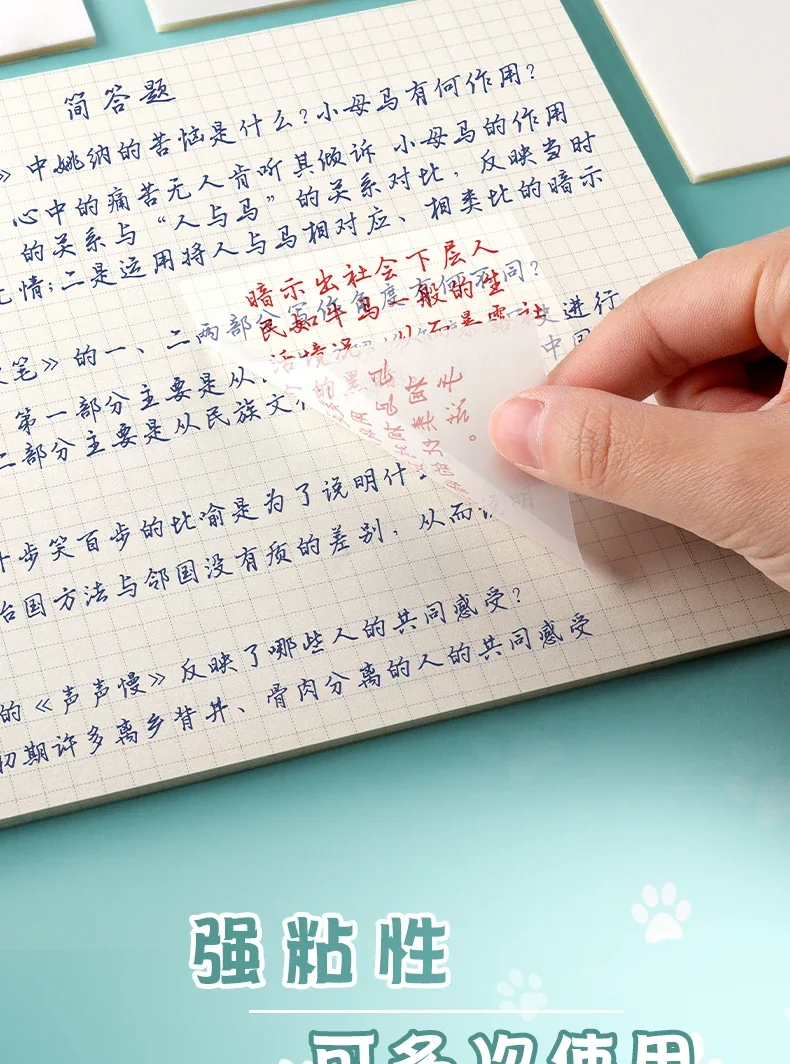 简答题
》中姚纳的苦恼是什么?小母马有何作用?
心中的痛苦无人肯听其倾诉 小母马的作用
的关系与“人与马”的关系对比，反映当时
无情;二是运用将人与马相对应、相类比的暗示
暗示出社会下层人
民如牛马一般的生
活境况，从而暴露社
笔》的一、二两部分写作角度有何不同?
第一部分主要是从
史进行
二部分主要是从民族文
中国
步笑百步的比喻是为了说明什
治国方法与邻国没有质的差别，从而说明
的《声声慢》反映了哪些人的共同感受?
初期许多离乡背井、骨肉分离的人的共同感受
强粘性
可多次使用